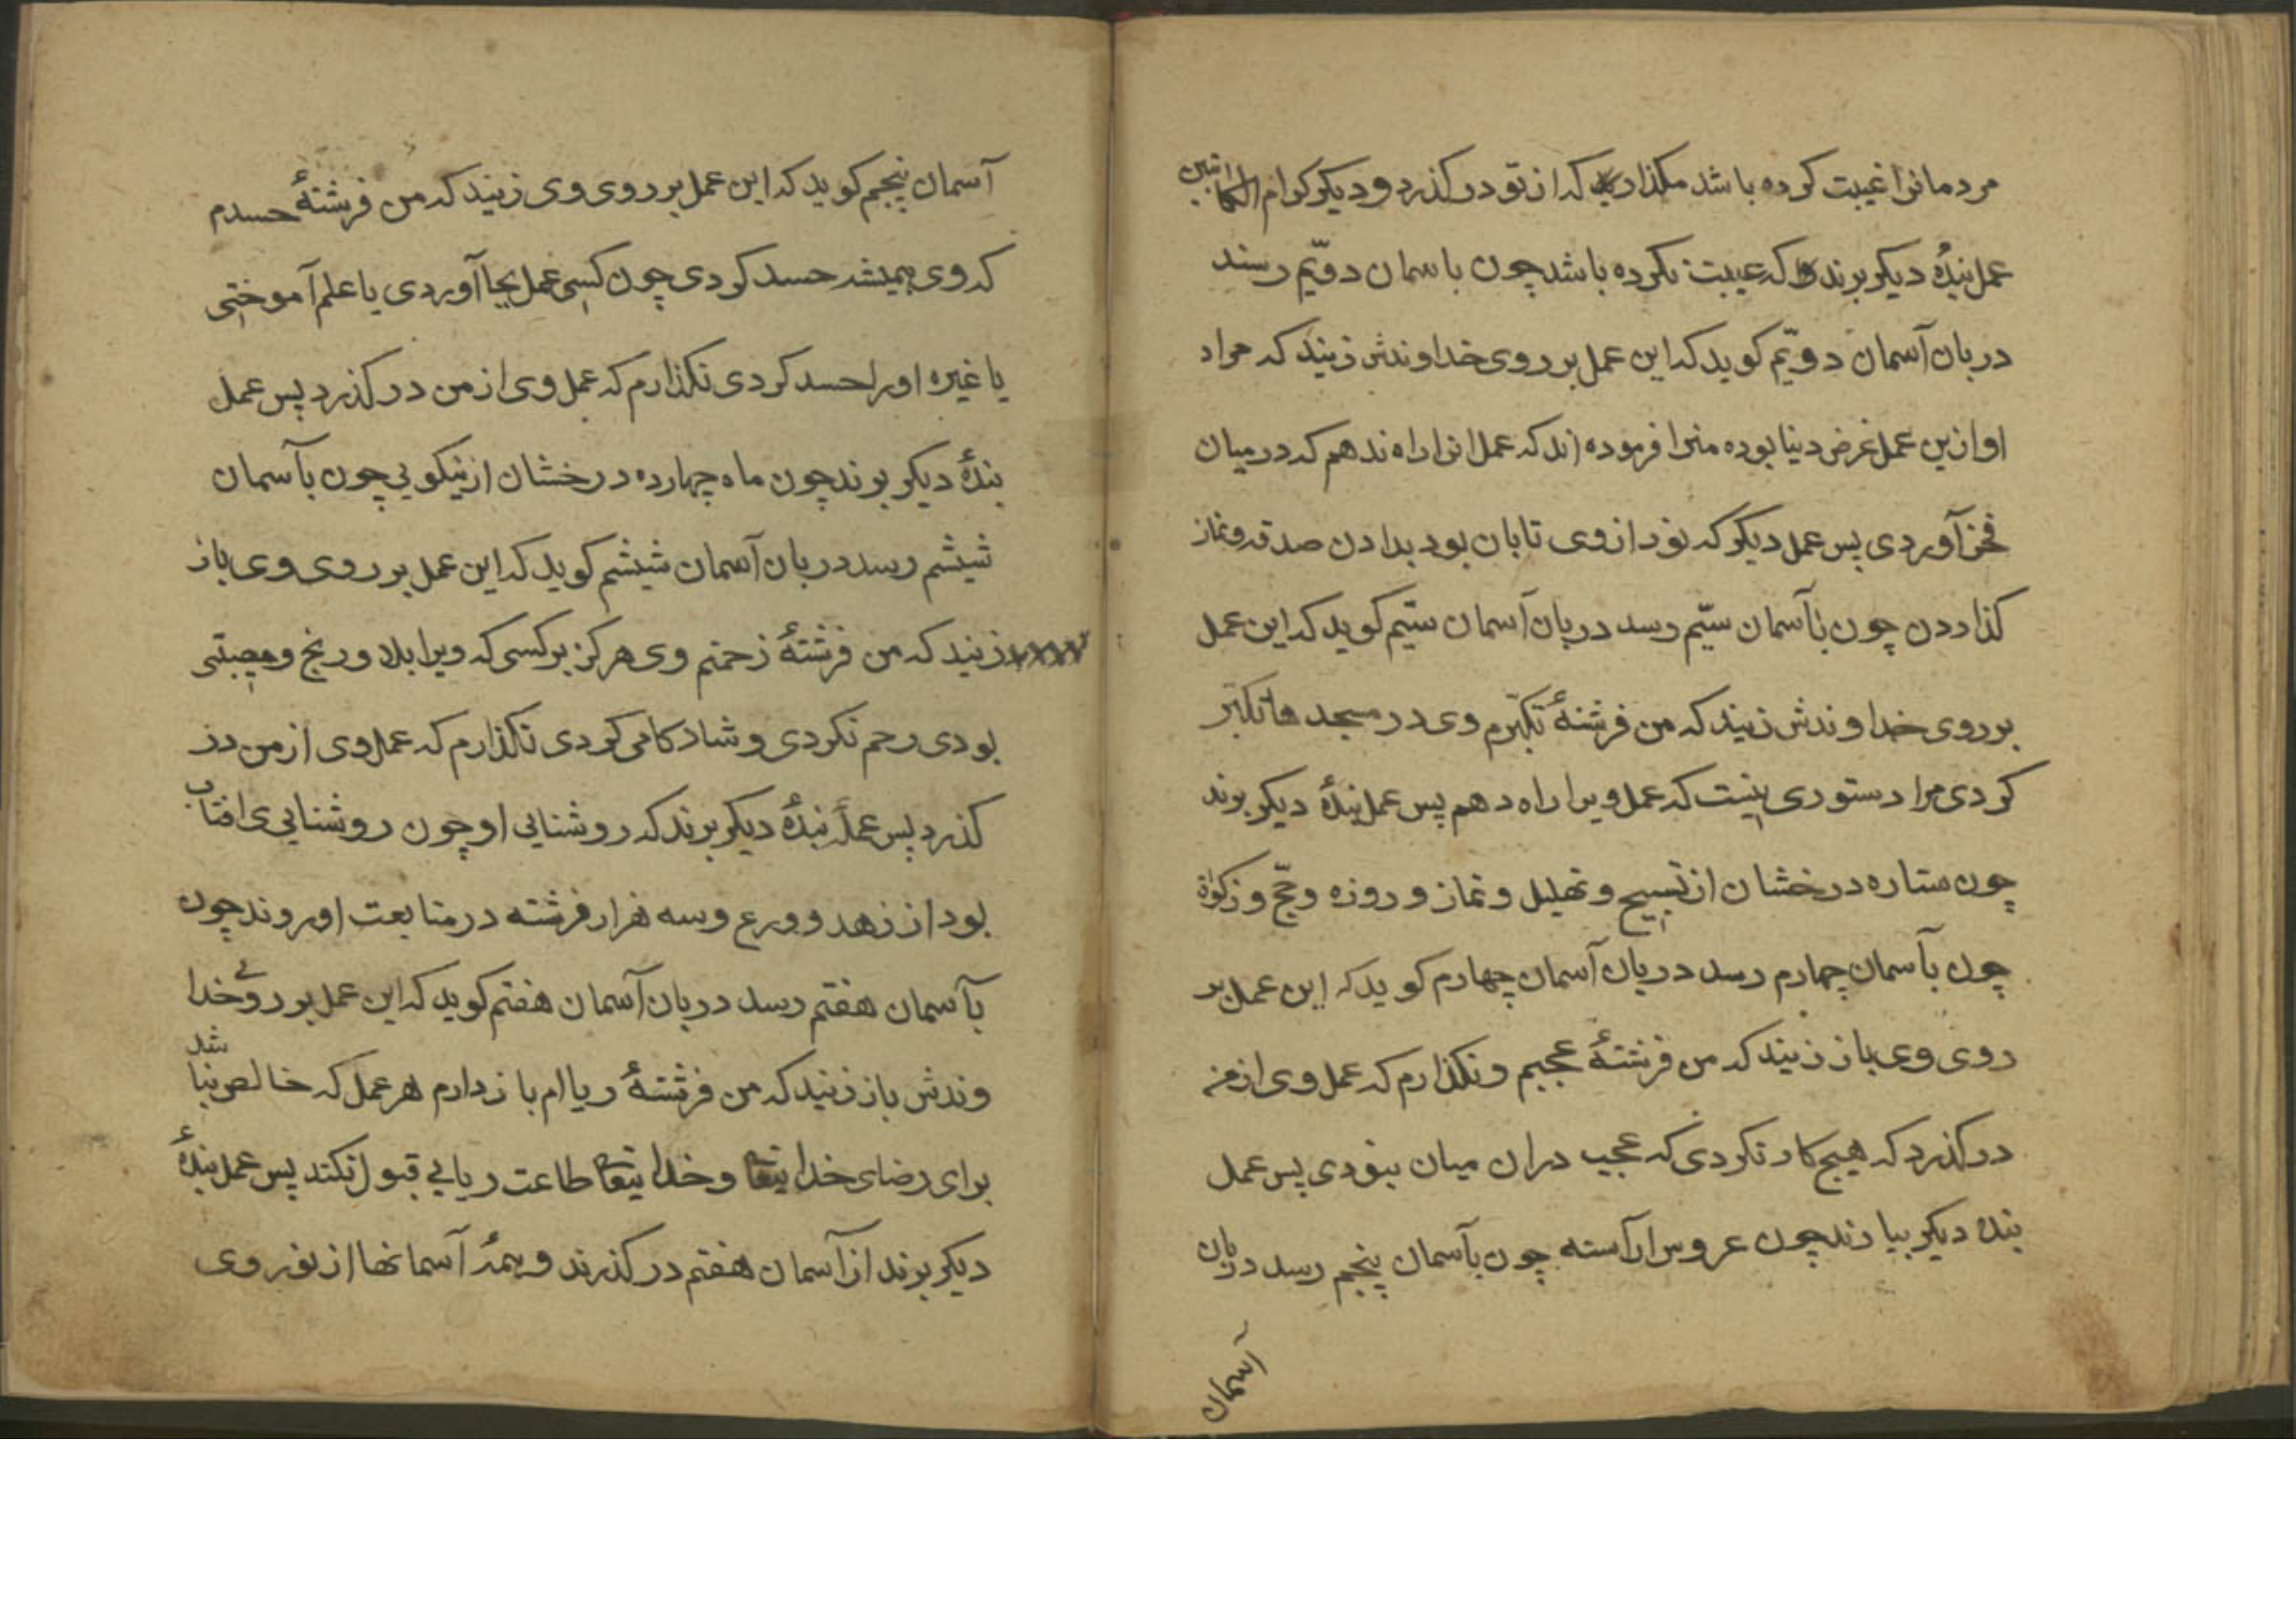 مردمانرا غیبت کرده باشد مکذار که از تو در کذرد و دیکر کرام الکاتبین
عمل بندهٔ دیکر برند که غیبت نکرده باشد چون باسمان دویّم رسند
دربان آسمان دویّم کوید که این عمل بر روی خداوندش زنید که مراد
او ازین عمل غرض دینا بوده منرا فرموده اند که عمل انرا راه ندهم که در میان
فخر آوردی پس عمل دیکر که نور از وی تابان بود بدادن صدقه و نماز
کذاردن چون بآسمان سیّم رسد دربان آسمان سیّم کوید که این عمل
بر روی خداوندش زنید که من فرشتهٔ تکبّرم وی در مسجد ها تکبّر
کردی مرا دستوری نیست که عمل ویرا راه دهم پس عمل بندهٔ دیکر برند
چون ستاره درخشان از تسبیح و تهلیل و نماز و روزه و حجّ و زکوة
چون بآسمان چهارم رسد دربان آسمان چهارم کوید که این عمل بر
روی وی باز زنید که من فرشتهٔ عجبم و نکذارم که عمل وی از من
در کذرد که هیچ کار نکردی که عجب دران میان نبودی پس عمل
بنده دیکر بیارند چون عروس اراسته چون بآسمان پنجم رسد دربان
آسمان
آسمان پنجم کوید که این عمل بر روی وی زنید که من فرشتهٔ حسدم
که وی همیشه حسد کردی چون کسی عمل بجا آوردی یا علم آموختی
یا غیره او را حسد کردی نکذارم که عمل وی از من در کذرد پس عمل
بندهٔ دیکر برند چون ماه چهارده درخشان از نیکویی چون بآسمان
شیشم رسد دربان آسمان شیشم کوید که این عمل بر روی وی باز
زنید که من فرشتهٔ زحمتم وی هرکز بر کسی که ویرا بلا و رنج و مصیبتی
بودی رحم نکردی و شادکامی کردی نکذارم که عمل وی از من در
کذرد پس عمل بندهٔ دیکر برند که روشنایی او چون روشنایی افتاب
بود از زهد و ورع و سه هزار فرشته در متابعت او روند چون
بآسمان هفتم رسد دربان آسمان هفتم کوید که این عمل بر روی خدا
وندش باز زنید که من فرشتهٔ ریاام باز دارم هر عمل که خالص نباشد
برای رضای خدا یتعا و خدا یتعا طاعت ریایی قبول نکند پس عمل بندهٔ
دیکر برند از آسمان هفتم در کذرند و همهٔ آسمانها از نور وی